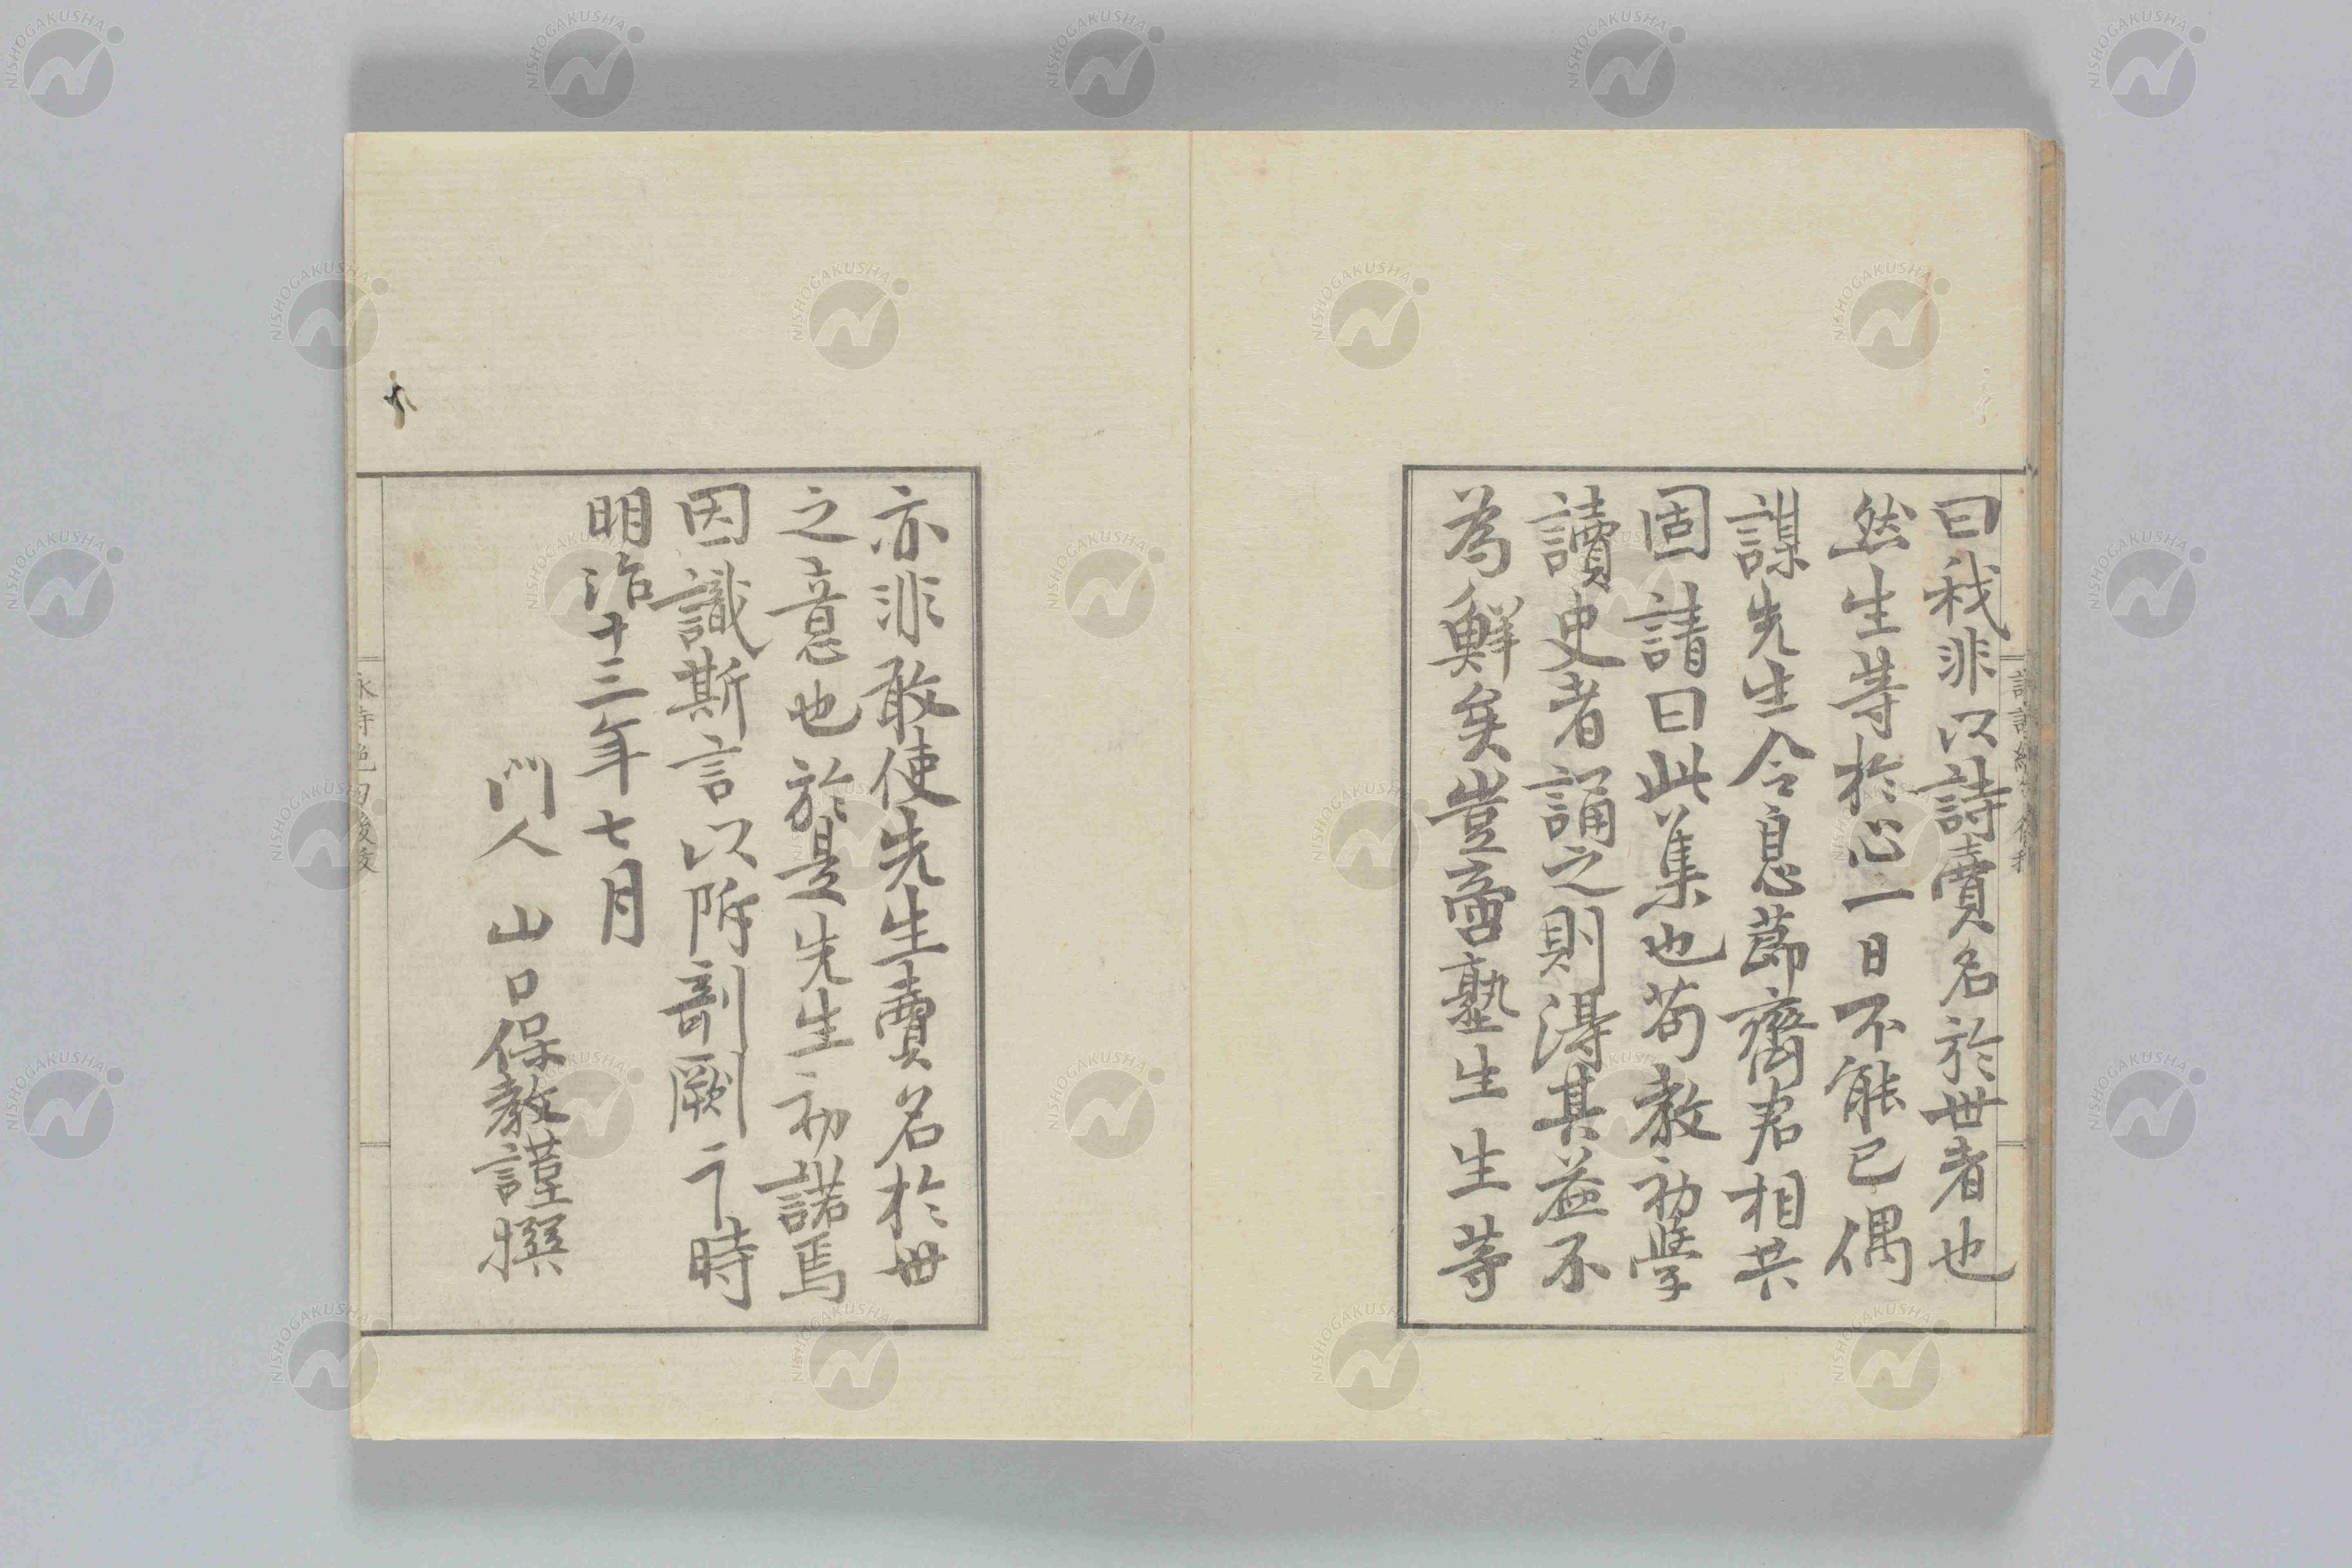 曰我非以詩賣名於世者也
然生等於心一日不能已偶
謀先生令息節齋君相共
固請曰此集也苟教初學
讀史者誦之則得其益不
為鮮矣豈啻塾生生等
亦非敢使先生賣名於世
之意也於是先生初諾焉
因識斯言以附剞劂之時
明治十三年七月
門人 山口保教謹撰
NISHOGAKUSHA